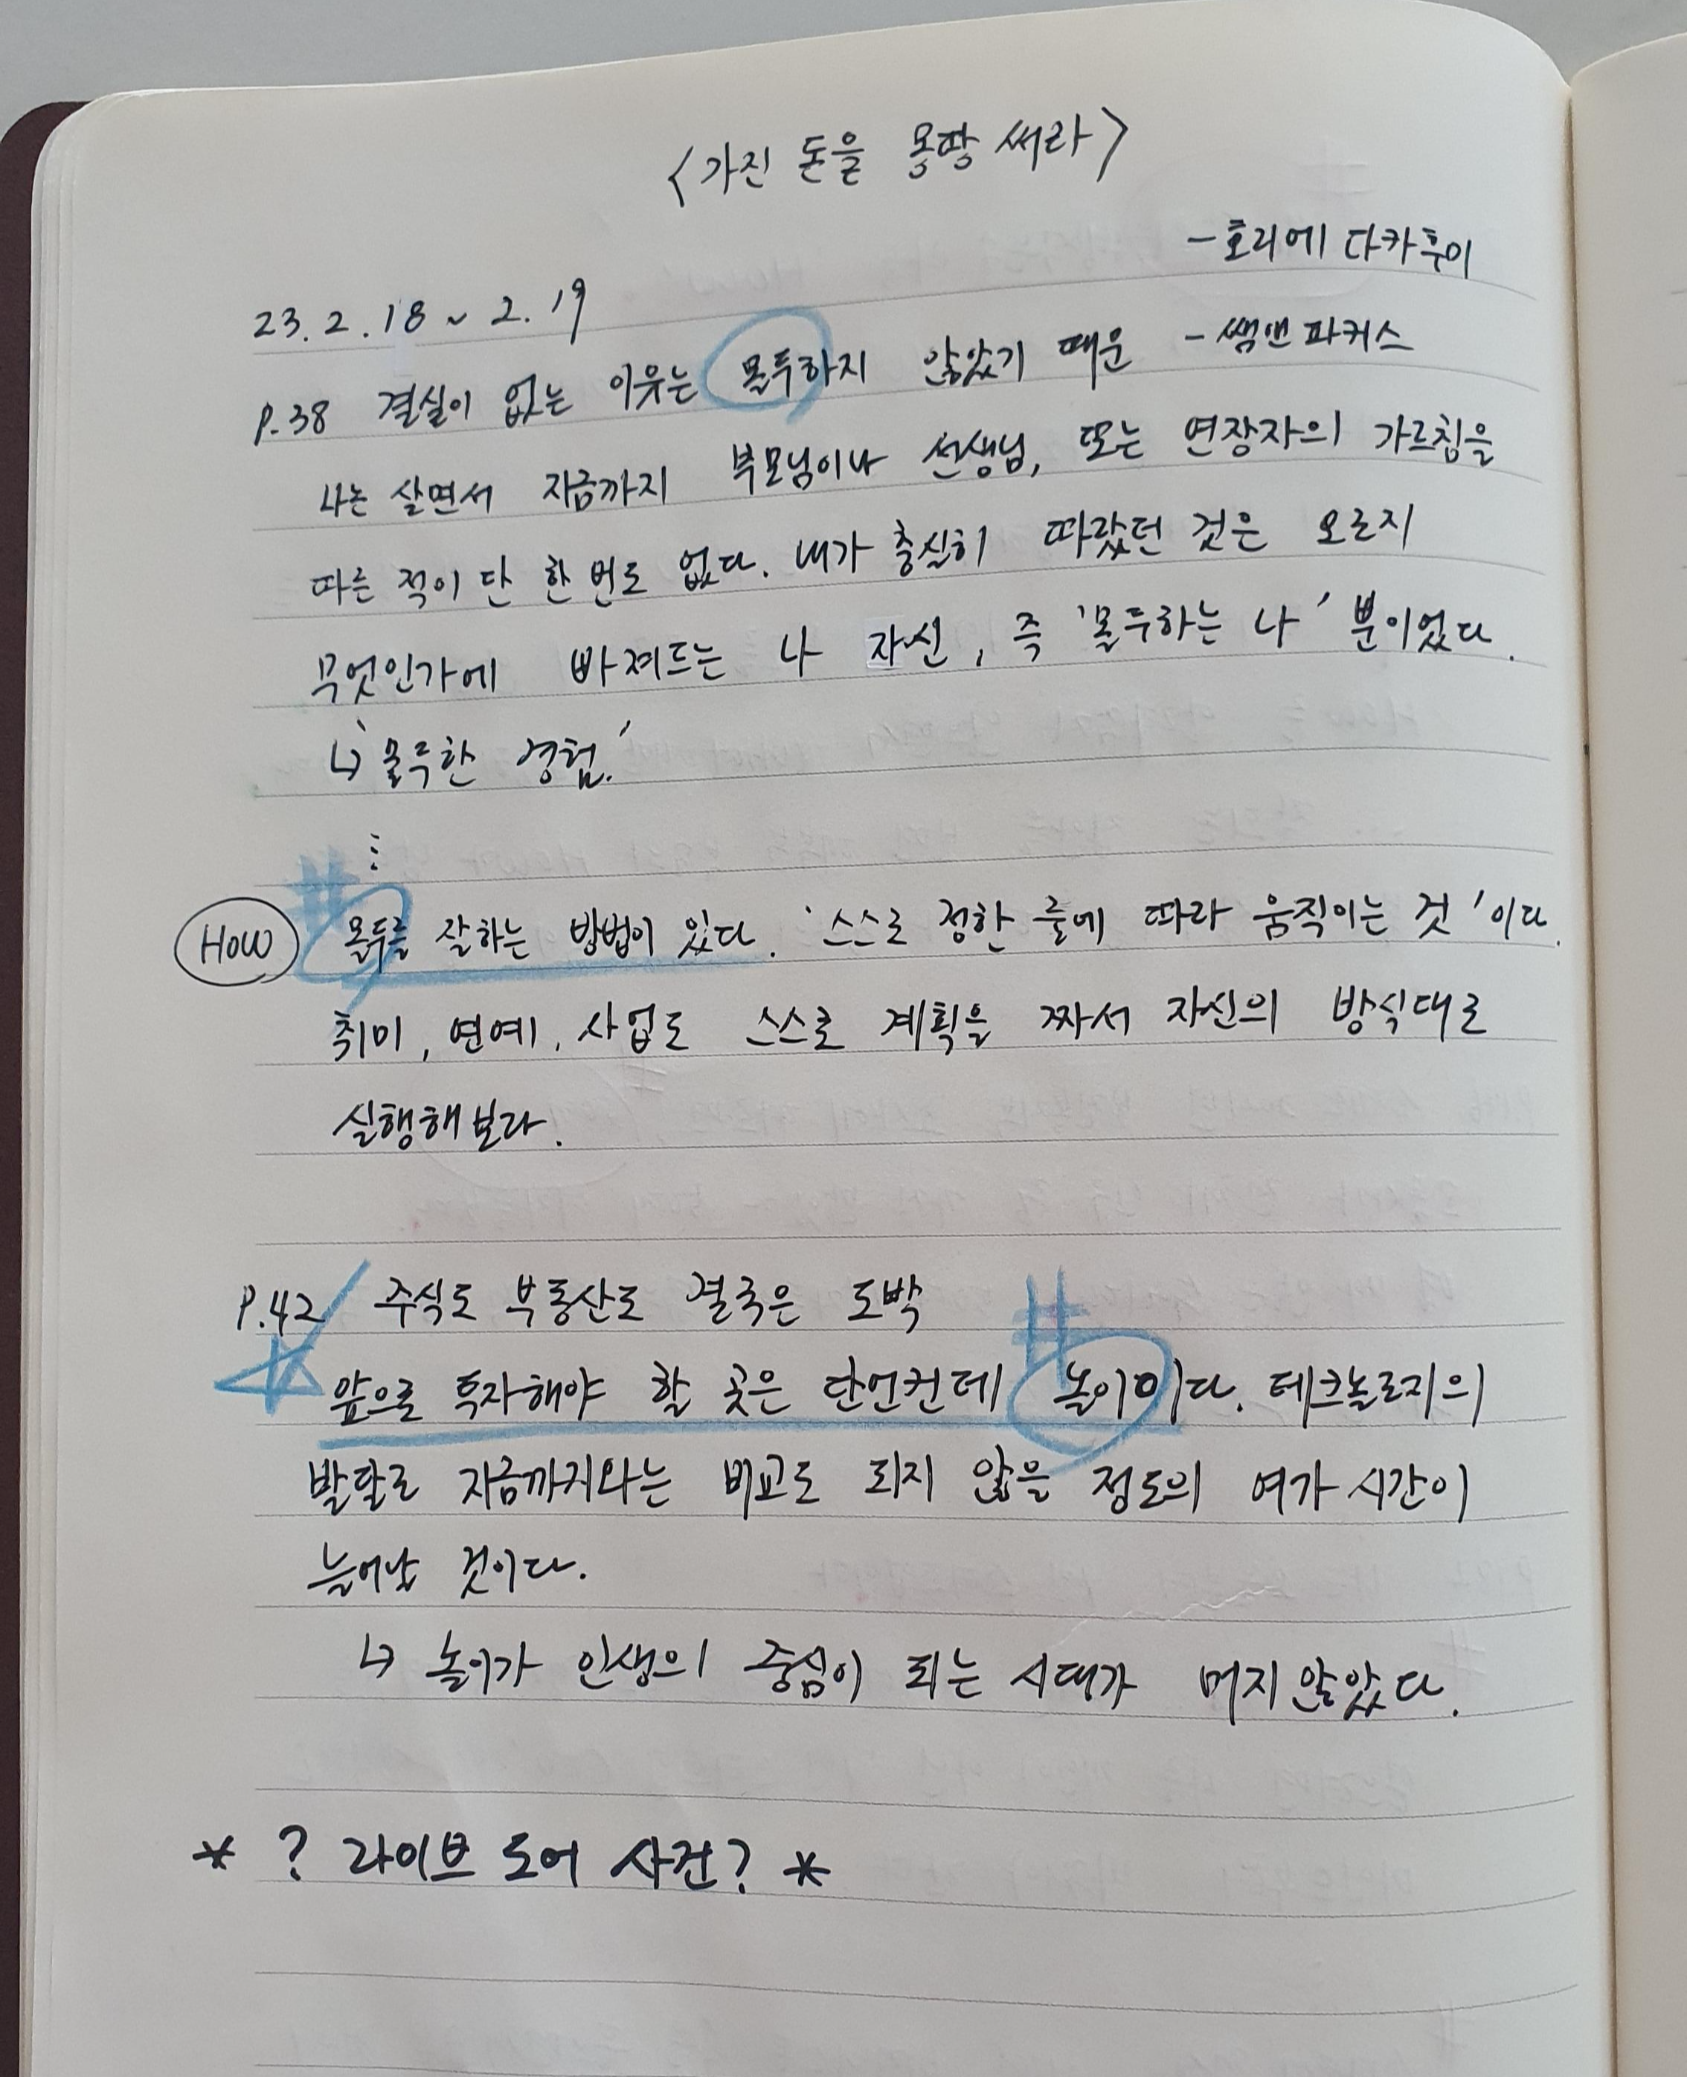 <가진 돈을 몽땅 써라>
- 호리에 다카후미
23.2.18 ~ 2.19
- 쌤앤파커스
P.38 결실이 없는 이유는 몰두하지 않았기 때문
나는 살면서 지금까지 부모님이나 선생님, 또는 연장자의 가르침을
따른 적이 단 한 번도 없다. 내가 충실히 따랐던 것은 오로지
무엇인가에 빠져드는 나 자신, 즉 '몰두하는 나' 뿐이었다.
↳ '몰두한 경험.'
⋮
#
How 몰두를 잘하는 방법이 있다. '스스로 정한 룰에 따라 움직이는 것'이다.
취미, 연예, 사업도 스스로 계획을 짜서 자신의 방식대로
실행해보라.
P.42 주식도 부동산도 결국은 도박
#
☆ 앞으로 투자해야 할 곳은 단언컨데 놀이이다. 테크놀로지의
발달로 지금까지와는 비교도 되지 않을 정도의 여가 시간이
늘어날 것이다.
↳ 놀이가 인생의 중심이 되는 시대가 머지않았다.
* ? 라이브 도어 사건? *